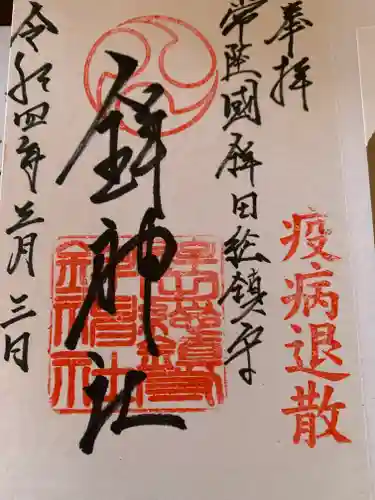 奉拝
疫病退散
常陸國鉾田総鎮守
鉾神社
令和四年三月三日